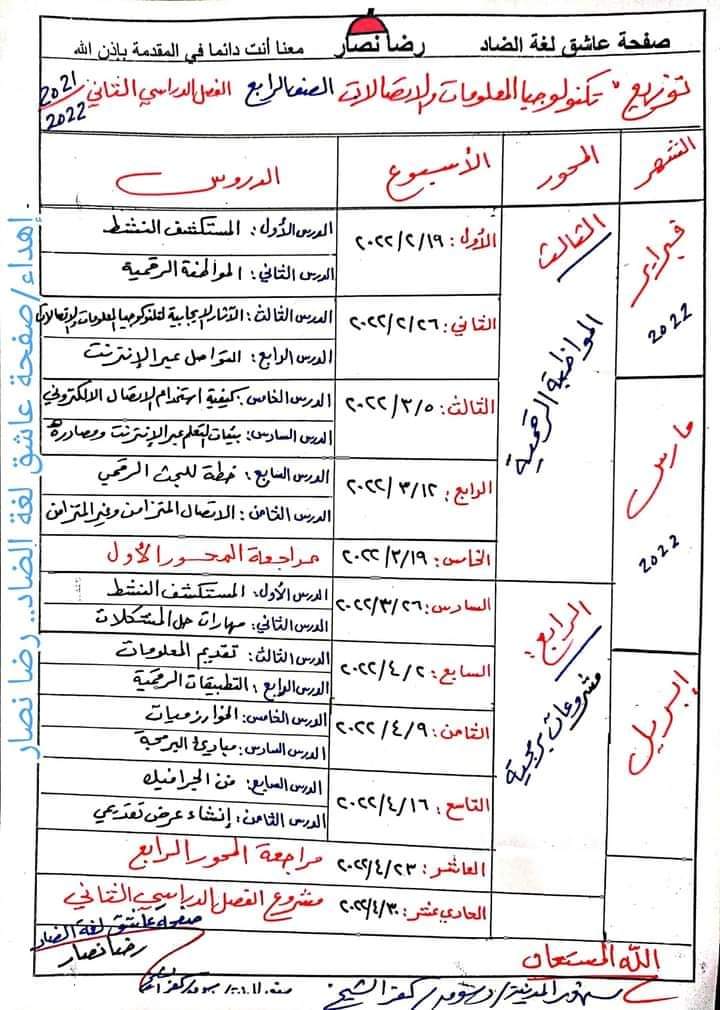 صفحة عاشق لغة الضاد رضا نصار معنا أنت دائما في المقدمة بإذن الله
توزيع " تكنولوجيا المعلومات والاتصالات الصف الرابع الفصل الدراسي الثاني 2021/2022
الشهر المحور الأسبوع الدروس
فبراير 2022
الثالث
المواطنة الرقمية
الأول: ٢٠٢٢/٢/١٩
الدرس الأول: المستكشف النشط
الدرس الثاني: المواطنة الرقمية
الثاني: ٢٠٢٢/٢/٢٦
الدرس الثالث: الآثار الإيجابية لتكنولوجيا المعلومات والاتصالات
الدرس الرابع: التواصل عبر الإنترنت
مارس 2022
الثالث: ٢٠٢٢/٣/٥
الدرس الخامس: كيفية استخدام الاتصال الالكتروني
الدرس السادس: بيئات التعلم عبر الإنترنت ومصادره
الرابع: ٢٠٢٢/٣/١٢
الدرس السابع: خطة للبحث الرقمي
الدرس الثامن: الاتصال المتزامن وغير المتزامن
الخامس: ٢٠٢٢/٣/١٩ مراجعة المحور الأول
الرابع:
مشروعات برمجية
السادس: ٢٠٢٢/٣/٢٦
الدرس الأول: المستكشف النشط
الدرس الثاني: مهارات حل المشكلات
إبريل
السابع: ٢٠٢٢/٤/٢
الدرس الثالث: تقديم المعلومات
الدرس الرابع: التطبيقات الرقمية
الثامن: ٢٠٢٢/٤/٩
الدرس الخامس: الخوارزميات
الدرس السادس: مبادئ البرمجة
التاسع: ٢٠٢٢/٤/١٦
الدرس السابع: من الجرافيك
الدرس الثامن: إنشاء عرض تقديمي
العاشر: ٢٠٢٢/٤/٢٣ مراجعة المحور الرابع
الحادي عشر: ٢٠٢٢/٤/٣٠ مشروع الفصل الدراسي الثاني
صفحة عاشق لغة الضاد
رضا نصار
الله المستعان
سنهور المدينة/دسوق/كفر الشيخ
إهداء/صفحة عاشق لغة الضاد.. رضا نصار